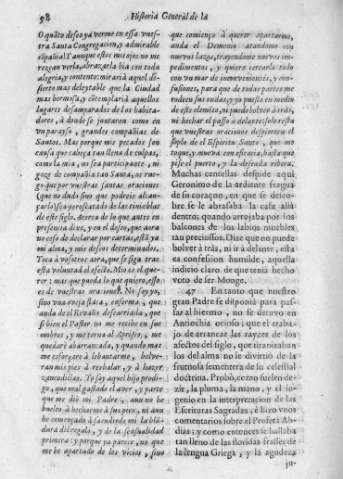 58 Historia General de la
O quãto deseo ya verme en essa vues-
tra Santa Congregacion, y admirable
cõpañia! Y aunque estos mis ojos no me-
rezcan verla, abraçarla hia con toda
alegria, y contento: miraria aquel di-
sierto mas deleytable que la Ciudad
mas hermosa, y cõtemplaria aquellos
lugares desamparados de las habita-
dores, à donde se juntaron como en
vn parayso, grandes compañias de
Santos. Mas porque mis pecados son
causa que cabeça tan llena de culpas,
como la mia, no sea participante, ni
goze de compañia tan Santa, os rue-
go que por vuestras santas oraciones
(Que no dudo sino que podreis alcan-
çarlo) sea librado de las tinieblas
de este siglo. Acerca de lo que antes en
presencia dixe, y en el deseo, que aora
no ceso de declarar por cartas, està ya
mi alma, y mis deseos determinados.
Toca à vosotros aora, que se siga tras
esta voluntad el efecto. Mio es el que-
rer: mas que pueda lo que quiero, esso
es de vuestras oraciones. Yo soy yo,
sino vna oveja flaca, enferma, que
anda de el Rebaño descarriada, que
si bien el Pastor no me recibe en sus
ombros, y me torna al Aprisco, me
quedarè abarrancada, y quando mas
me esforçare à lebantarme, bolve-
ran mis pies à resbalar, y à hazer
zancadillas. Yo soy aquel hijo prodi-
go, que mal gastado el aver, y parte
que me diò mi Padre, aun no he
buelto à hecharme à sus pies, ni aun
he començado à sacudirme mi blãdu-
dura del regalo, y de la sensualidad
primera: y porque ya parece, no que
me he apartado de los vicios, sino
que comienço à querer apartarme,
anda el Demonio atandome con
nuevos lazos, trayendome nuevos in-
pedimentos, y quiere cercarle todo
con vn mar de inconvenientes, y con-
fusiones, para que de todas partes me
rodeen sus ondas, y yo puesto en medio
de este elemento, ni puedo bolver à tràs,
ni hechar el passo à delante: solo resta
que vuestras oraciones despierten el
soplo de el Espiritu Santo, que me
toque, y mueva con eficacia, hasta que
pise el puerto, y la deseada ribera.
Muchas centellas despide aqui
Geronimo de la ardiente fragua
de su coraçon, en que se descu-
bre se le abrasaba la casa allà
dentro, quando arrojaba por los
balcones de los labios muebles
tan preciosos. Dize que no puede
bolver à tràs, ni ir à delante, esta
es confession humilde, aquella
indicio claro de que tenia hecho
voto de ser Monge.
47 En tanto que nuestro
gran Padre se disponia para pas-
sar al hiermo, no se detuvo en
Antiochia ocioso; que el traba-
jo de arrancar las rayzes de los
afectos del siglo, que tiranizaban
los del alma no le divirtiò de la
frutuosa sementera de su celestial
doctrina. Probò, como suelen de-
zir, la pluma, la mano, y el in-
genio en la interpretacion de las
Escrituras Sagradas, è hizo vnos
comentarios sobre el Profeta Ab-
dias; y como entonces se hallaba
tan lleno de las floridas frasses de
la lengua Griega, y la agudeza
ju-